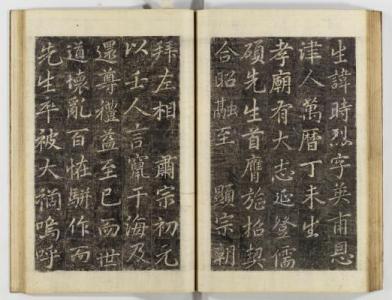 生諱時烈字英甫恩
津人萬曆丁未生
孝廟有大志延登儒
碩先生首膺旌招契
合昭融至 顯宗朝
拜左相 肅宗初元
以壬人言竄于海及
還尊禮益至已而世
道壞亂百怪騈作而
先生卒被大禍嗚呼